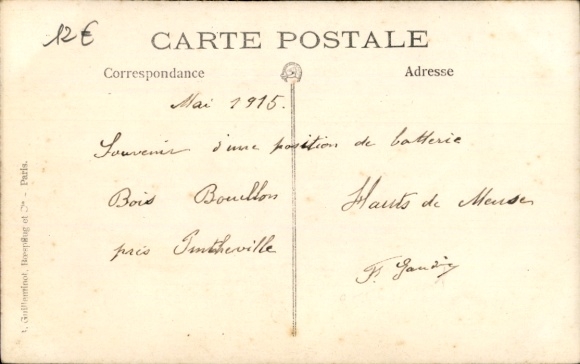 12€
CARTE POSTALE
Correspondance
Adresse
Mai 1915.
Souvenir d'une position de batterie
Bois Bouillon
Hauts de Meuse
près
F. Gaudy
R. Guilleminot, Bœspflug et Cie - Paris.